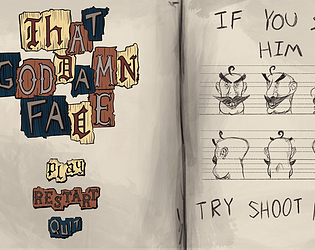 That
GODDAMN
FACE
Play
RESTART
Quit
IF YOU
HIM
TRY SHOOT